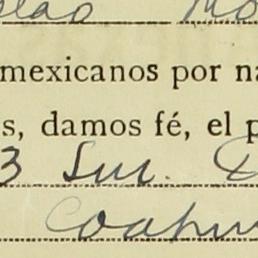 mexicanos por na
s, damos fé, el p
3 Sur.
Coahu